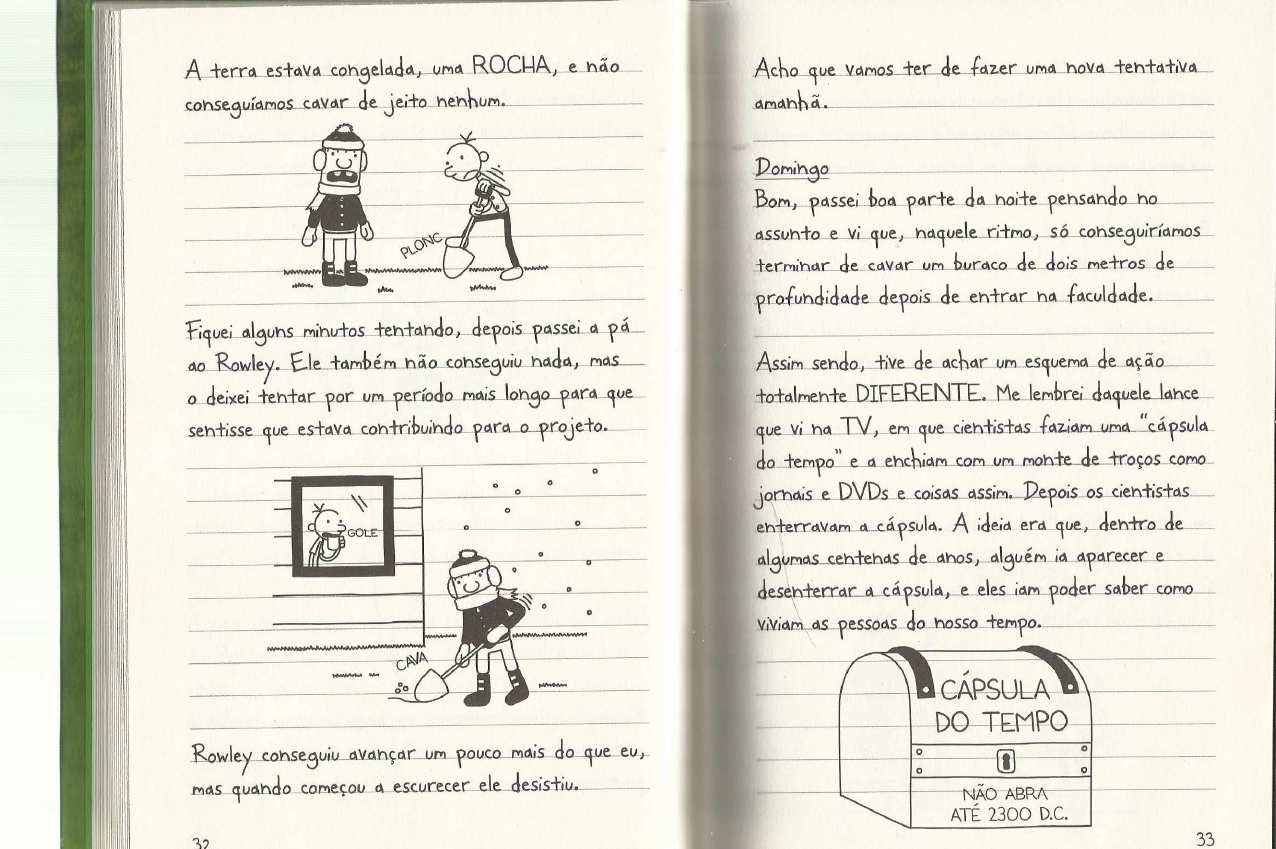 A terra estava congelada, uma ROCHA, e não
conseguíamos cavar de jeito nenhum.
PLONC
Fiquei alguns minutos tentando, depois passei a pá
ao Rowley. Ele também não conseguiu nada, mas
o deixei tentar por um período mais longo para que
sentisse que estava contribuindo para o projeto.
GOLE
CAVA
Rowley conseguiu avançar um pouco mais do que eu,
mas quando começou a escurecer ele desistiu.
32
Acho que vamos ter de fazer uma nova tentativa
amanhã.
Domingo
Bom, passei boa parte da noite pensando no
assunto e vi que, naquele ritmo, só conseguiríamos
terminar de cavar um buraco de dois metros de
profundidade depois de entrar na faculdade.
Assim sendo, tive de achar um esquema de ação
totalmente DIFERENTE. Me lembrei daquele lance
que vi na TV, em que cientistas faziam uma "cápsula
do tempo" e a enchiam com um monte de troços como
jornais e DVDs e coisas assim. Depois os cientistas
enterravam a cápsula. A ideia era que, dentro de
algumas centenas de anos, alguém ia aparecer e
desenterrar a cápsula, e eles iam poder saber como
viviam as pessoas do nosso tempo.
CÁPSULA
DO TEMPO
NÃO ABRA
ATÉ 2300 D.C.
33